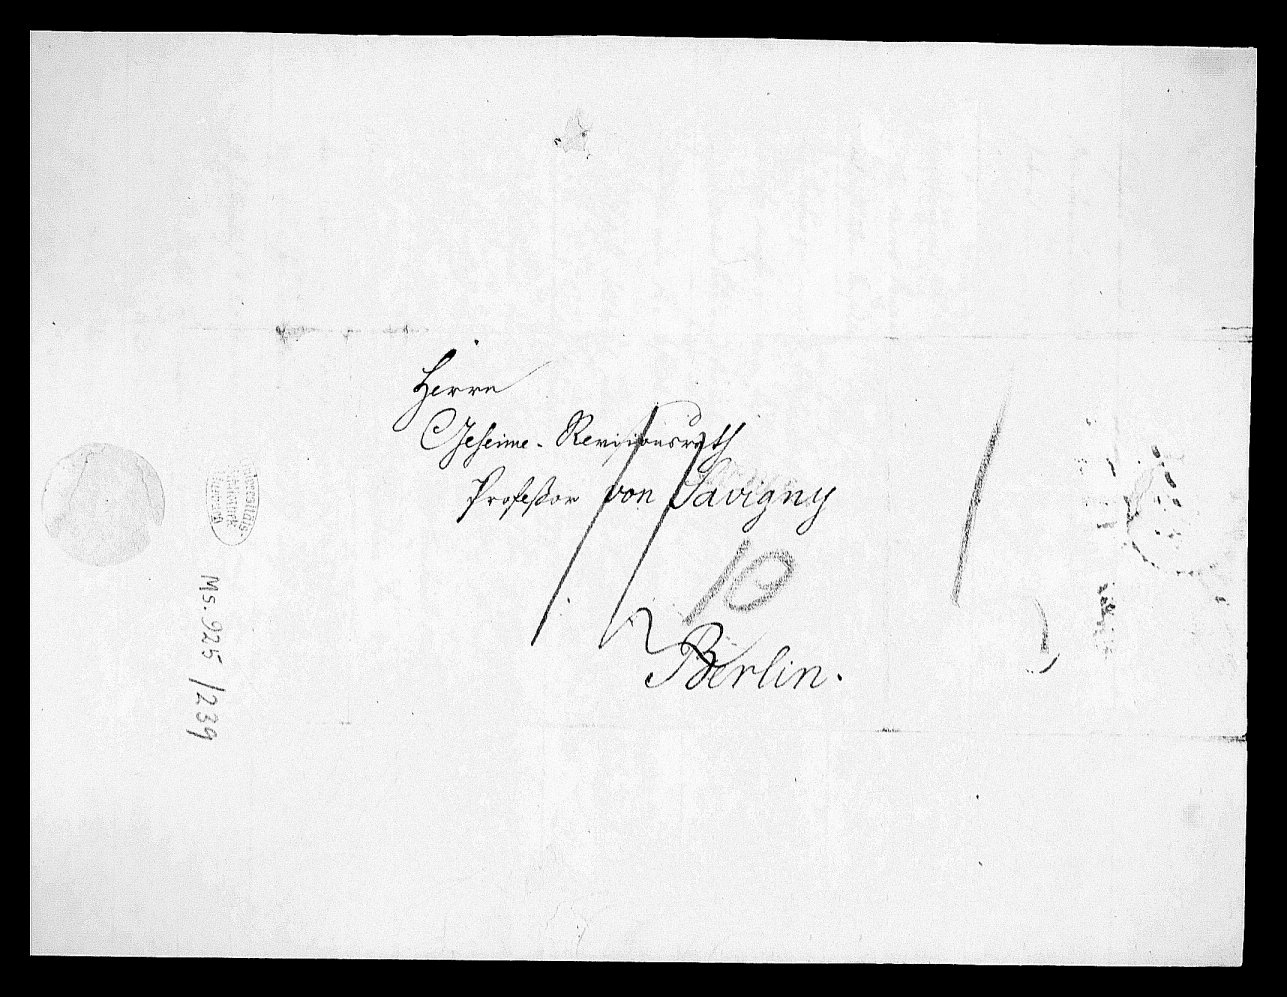 Herrn
Geheime-Revisionsrath
Professor von Savigny
10
Berlin.
Ms. 925/239